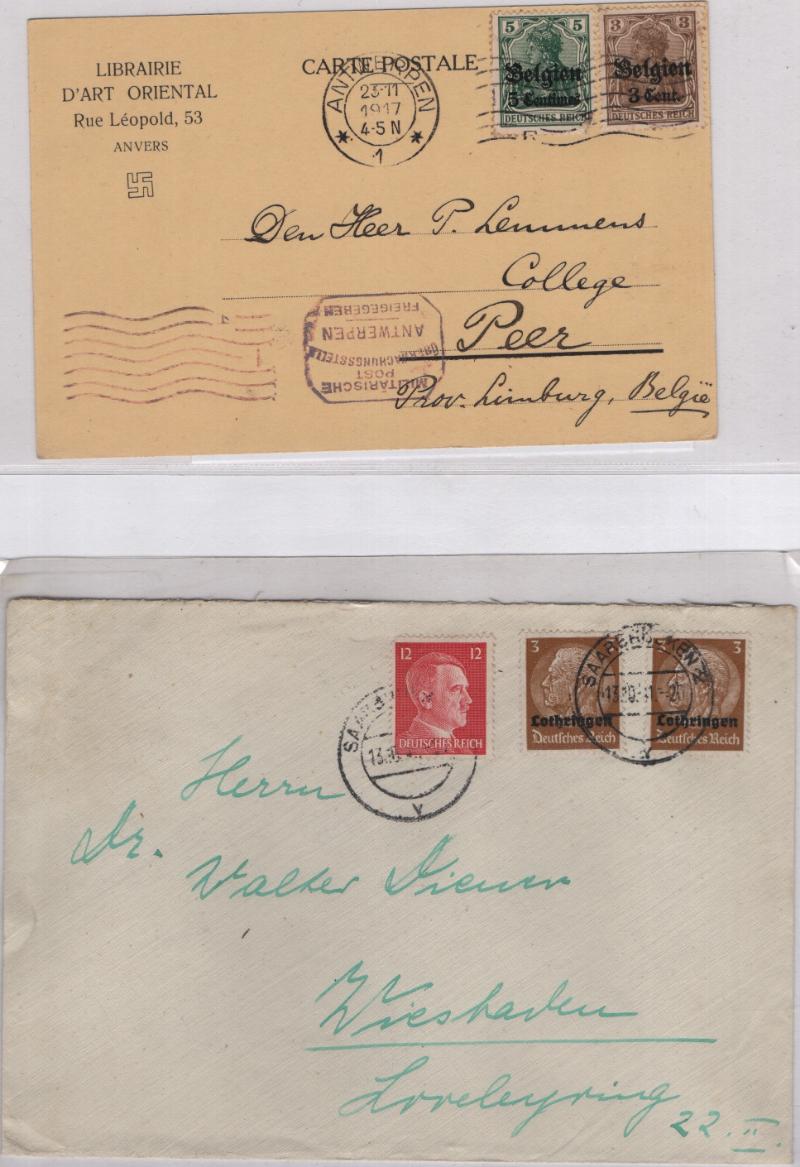 LIBRAIRIE
D'ART ORIENTAL
Rue Léopold, 53
ANVERS
CARTE POSTALE
ANTWERPEN
23-11
1917
4-5 N
1
5 5
Belgien
5 Centimes
DEUTSCHES REICH
3 3
Belgien
3 Cent.
DEUTSCHES REICH
Den Heer P. Lemmens
College
Peer
Prov. Limburg, België
MILITÄRISCHE
POST
ÜBERWACHUNGSSTELLE
ANTWERPEN
FREIGEGEBEN
12 12
DEUTSCHES REICH
3
Lothringen
Deutsches Reich
3
Lothringen
Deutsches Reich
Herrn
Dr. Walter Diener
Wiesbaden
Loreleyring
22. II.